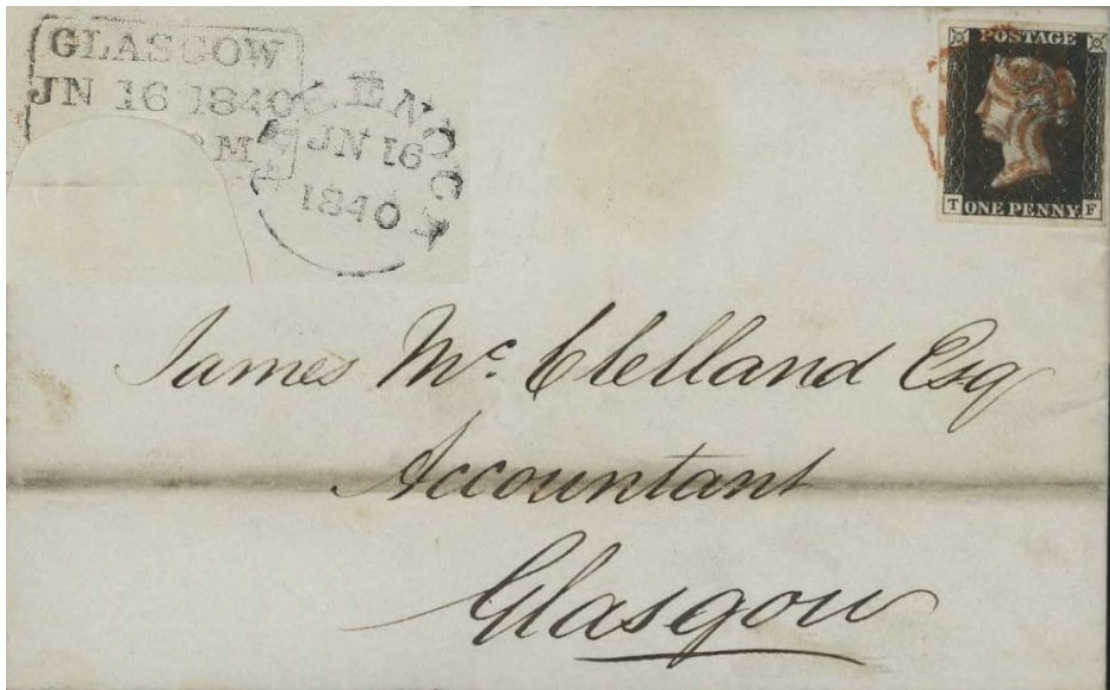 GLASGOW
JN 16 1840
PM
JN 16
1840
POSTAGE
T ONE PENNY F
James Mc. Clelland Esq
Accountant
Glasgow